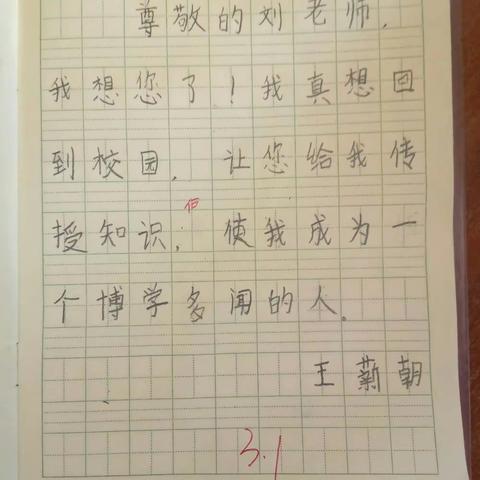 尊敬的刘老师,
我想您了!我真想回
到校园,让您给我传
授知识,使我成为一
个博学多闻的人。
王薪朝
3.1